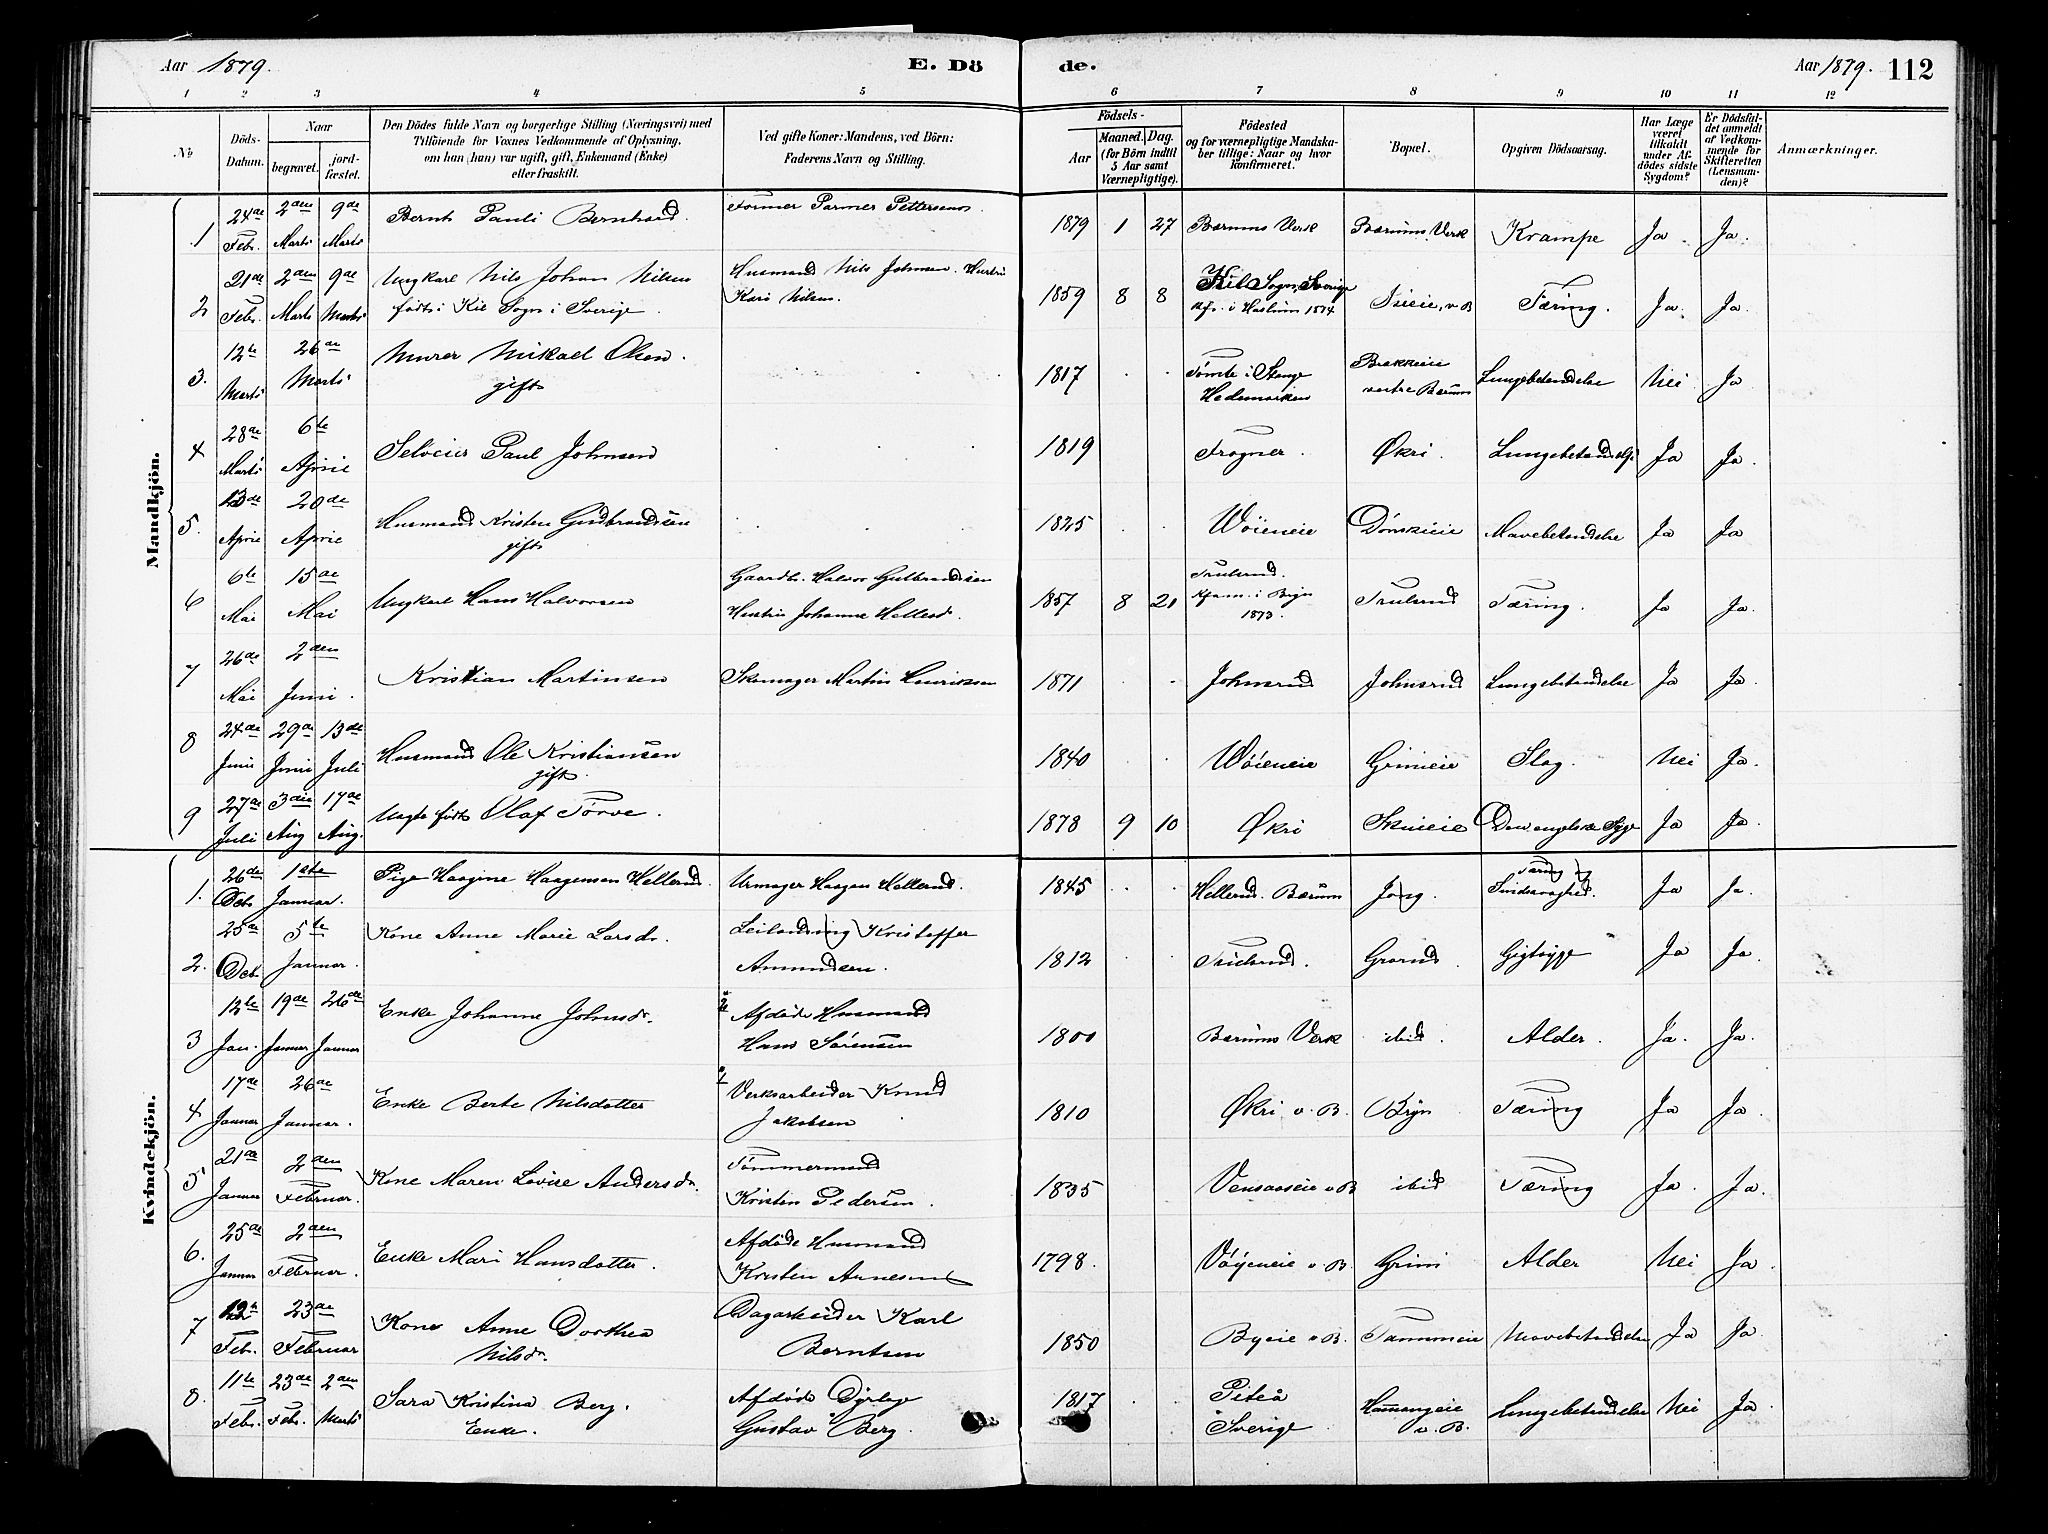 Aar 1879.
E. Dö
de.
Aar 1879.
112
1 2 3 4 5 6 7 8 9 10 11 12
No
Döds-Datum.
Naar
begravet.
jord-fæstet.
Den Dödes fulde Navn og borgerlige Stilling (Næringsvei) med
Tilföiende for Voxnes Vedkommende af Oplysning,
om han (hun) var ugift, gift, Enkemand (Enke)
eller fraskilt.
Ved gifte Koner: Mandens, ved Börn:
Faderens Navn og Stilling.
Födsels-
Aar
Maaned. Dag.
(for Börn indtil
5 Aar samt
Værnepligtige).
Födested
og for værnepligtige Mandska-
ber tillige: Naar og hvor
konfirmeret.
Bopæl.
Opgiven Dödsaarsag.
Har Læge
været
tilkaldt
under Af-
dödes sidste
Sygdom?
Er Dödsfal-
det anmeldt
af Vedkom-
mende for
Skifteretten
(Lensman-
den)?
Anmærkninger.
Mandkjön.
1 24de Febr. 2den Marts 9de Marts Bernt Pauli Bernhard. Former Parmer Pettersens. 1879 1 27 Bærums Verk Bærums Verk Krampe Ja. Ja.
2 21de Febr. 2den Marts 9de Marts Ungkarl Nils Johan Nilsen
født i Kil Sogn i Sverige. Husmand Nils Johnsen. Hustru
Kari Nilsen. 1859 8 8 Kil Sogn, Sverige
Kfr. i Haslum 1874 v. B Tæring. Ja. Ja.
3. 12te Marts 26de Marts Murer Mikael Olsen.
gift 1817 Tomte i Stange
Hedemarken Bakkeeie
vestre Bærum Lungebetændelse Nei Ja
4 28de Marts 6te April Selveier Paul Johnsen 1819 Frogner. Økri. Lungebetændelse Ja Ja.
5. 13de April 20de April Husmand Kristen Gudbrandsen
gift 1825 Wøieneie Dønskieie Mavebetændelse Ja Ja
6 6te Mai 15de Mai Ungkarl Hans Halvorsen Gaardbr. Halvor Gulbrandsen
Hustru Johanne Hellesd. 1857 8 21 Trulsrud.
Kfrm. i Bryn
1873. Trulsrud Tæring. Ja Ja.
7 26de Mai 2den Juni. Kristian Martinsen Skomager Martin Henriksen 1871 Johnsrud Johnsrud Lungebetændelse Ja Ja.
8 24de Juni 29de Juni 13de Juli Husmand Ole Kristiansen
gift. 1840 Wøieneie Grinieie Slag. Nei Ja.
9 27de Juli 3die Aug 17de Aug. Uægte født Olaf Torve. 1878 9 10 Økri Skuieie Den engelske Syge Ja Ja.
Kvindekjön.
1. 26de Decb. 1ste Januar. Pige Haagine Haagensen Hellerud. Urmager Haagen Hellerud. 1845 Hellerud. Bærum Jong. Tæring og
Sindssvaghed. Ja Ja.
2. 25de Decb 5te Januar. Kone Anne Marie Larsdr. Leilending Kristoffer
Amundsen. 1812 Trulsrud. Grorud Gigtsyge Ja Ja.
3 12te Jan. 19de Januar 26de Januar Enke Johanne Johnsdr. Afdøde Husmand
Hans Sørensen 1800 Bærums Verk ibid. Alder. Ja. Ja.
4 17de Januar 26de Januar. Enke Berte Nilsdotter Verksarbeider Knud
Jakobsen 1810 Økri v. B. Bryn Tæring Ja Ja.
5 21de Januar 2den Februar. Kone Maren Lovise Andersdr. Tømmermand
Kristen Pedersen. 1835 v B ibid Tæring Ja. Ja.
6. 25de Januar 2den Februar. Enke Mari Hansdatter. Afdøde Husmand
Kristen Arnesen 1798. Vøyeneie v. B. Grini Alder Nei Ja.
7 12te Feb. 23de Februar Kone Anne Dorthea
Nilsdr. Dagarbeider Karl
Berntsen 1850 Byeie v. B. Tanumeie Mavebetændelse Ja Ja.
8. 11te Febr. 23de Febr. 2den Marts Sara Kristina Berg.
Enke. Afdøde Dyrlæge
Gustav Berg. 1817 Piteå
Sverige Hamangeie
v. B. Lungebetændelse Nei Ja.